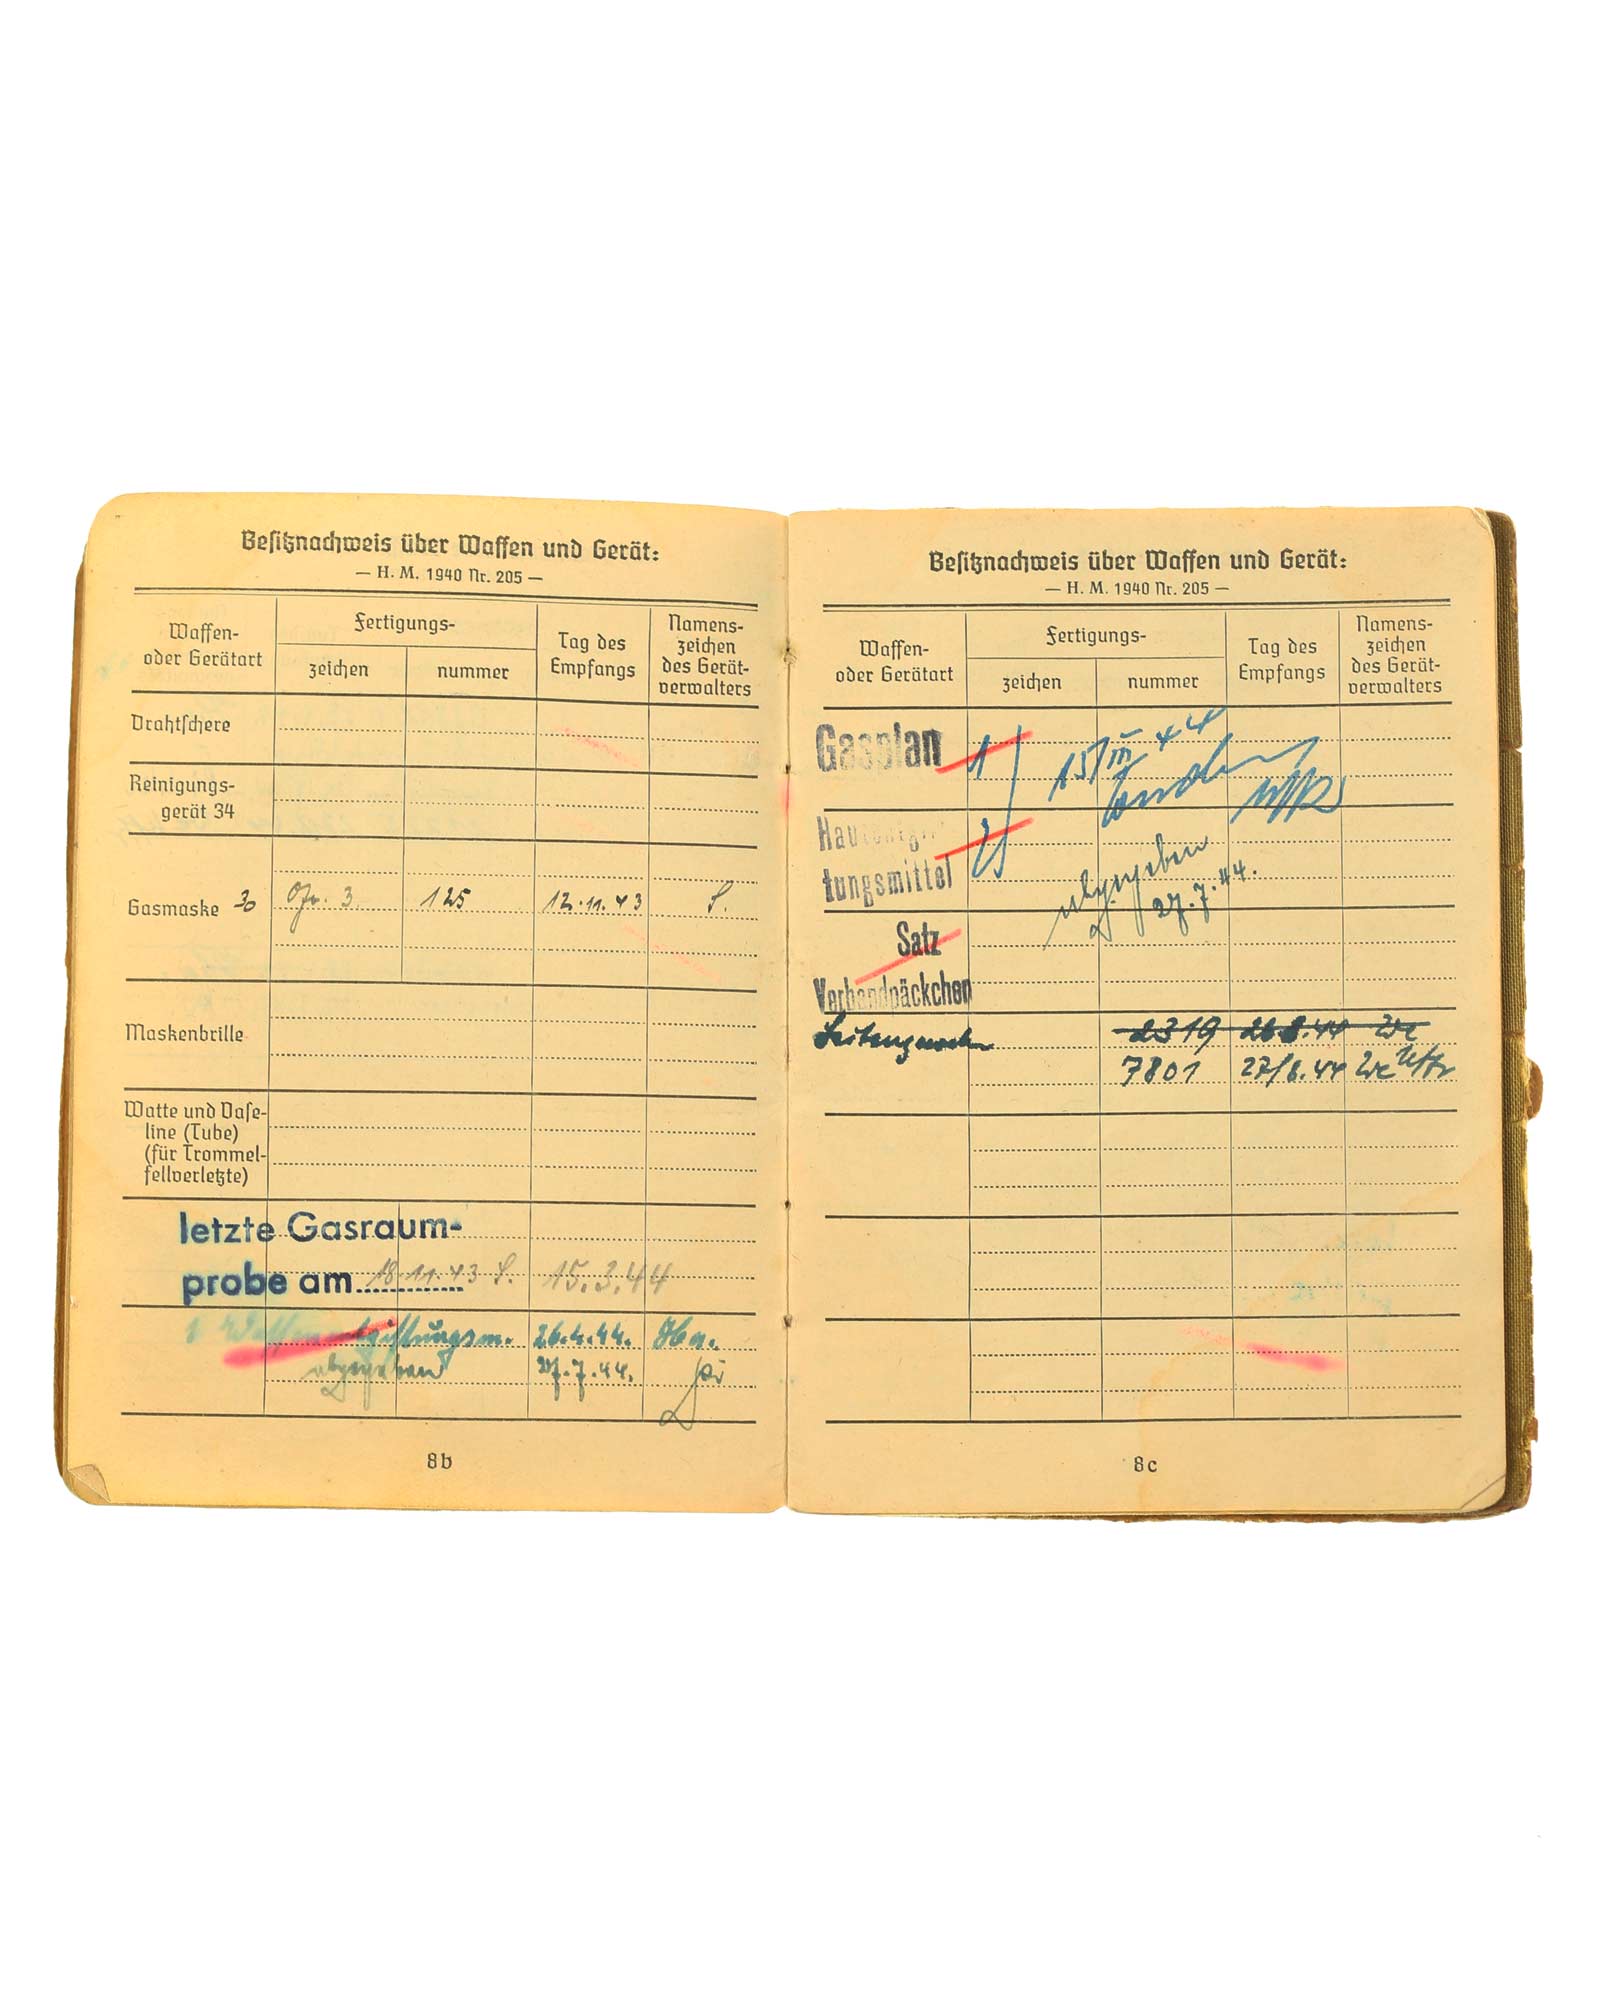 Besitznachweis über Waffen und Gerät:
— H. M. 1940 Nr. 205 —
Waffen-
oder Gerätart
Fertigungs-
zeichen
nummer
Tag des
Empfangs
Namens-
zeichen
des Gerät-
verwalters
Drahtschere
Reinigungs-
gerät 34
Gasmaske 30 3 125 12.11.43 S.
Maskenbrille
Watte und Vase-
line (Tube)
(für Trommel-
fellverletzte)
letzte Gasraum-
probe am 18.11.43 S. 15.3.44
1 Waffenentgiftungsm. 26.4.44.
abgegeben 27.7.44.
8b
Besitznachweis über Waffen und Gerät:
— H. M. 1940 Nr. 205 —
Waffen-
oder Gerätart
Fertigungs-
zeichen
nummer
Tag des
Empfangs
Namens-
zeichen
des Gerät-
verwalters
Gasplan 1 15/III 44
Hautentgif-
tungsmittel
abgegeben
27.7.44.
Satz
Verbandpäckchen
Seitengewehr 2319 26.8.44 We
7801 27/8.44 We Uffz
8c